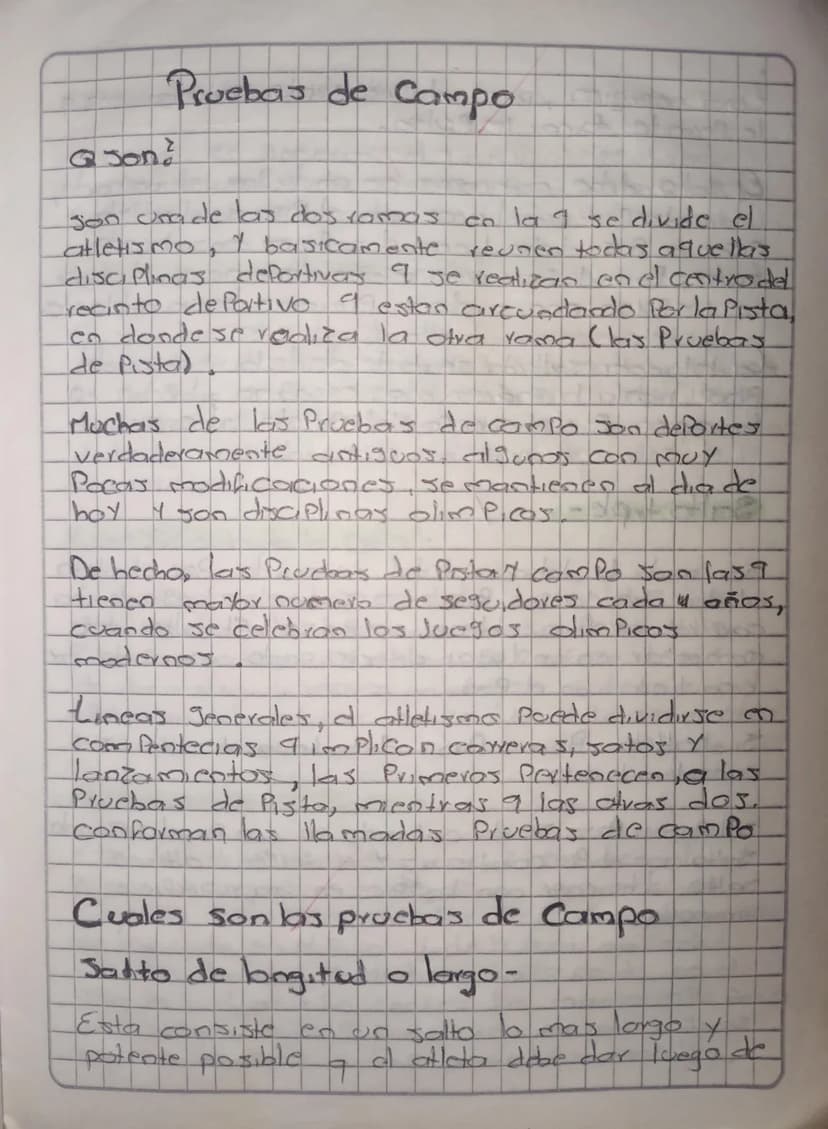 Pruebas de Campo
Q son?
son una de las dos ramas en la q se divide el
atletismo, y basicamente reunen todas aquellas
disciplinas deportivas q se realizan en el centro del
recinto deportivo q estan arcuedando por la pista,
en donde se realiza la otra rama (las Pruebas
de pista).
Muchas de las Pruebas de campo son deportes
verdaderamente antiguos, algunos con muy
Pocas modificaciones, se mantienen al dia de
hoy y son disciplinas olimpicas.
De hecho, las Pruebas de Pista y campo son las q
tienen mayor numero de seguidores cada 4 años,
cuando se celebran los Juegos olimpicos
modernos.
Lineas generales, el atletismo puede dividirse en
compentecias q implican carreras, satos y
lanzamientos, las Primeras Pertenecen, a las
Pruebas de Pista, mientras q las otras dos.
conforman las llamadas Pruebas de campo
Cuales son las pruebas de Campo
Salto de longitud o largo-
Esta consiste en un salto lo mas largo y
potente posible q el atleta debe dar luego de